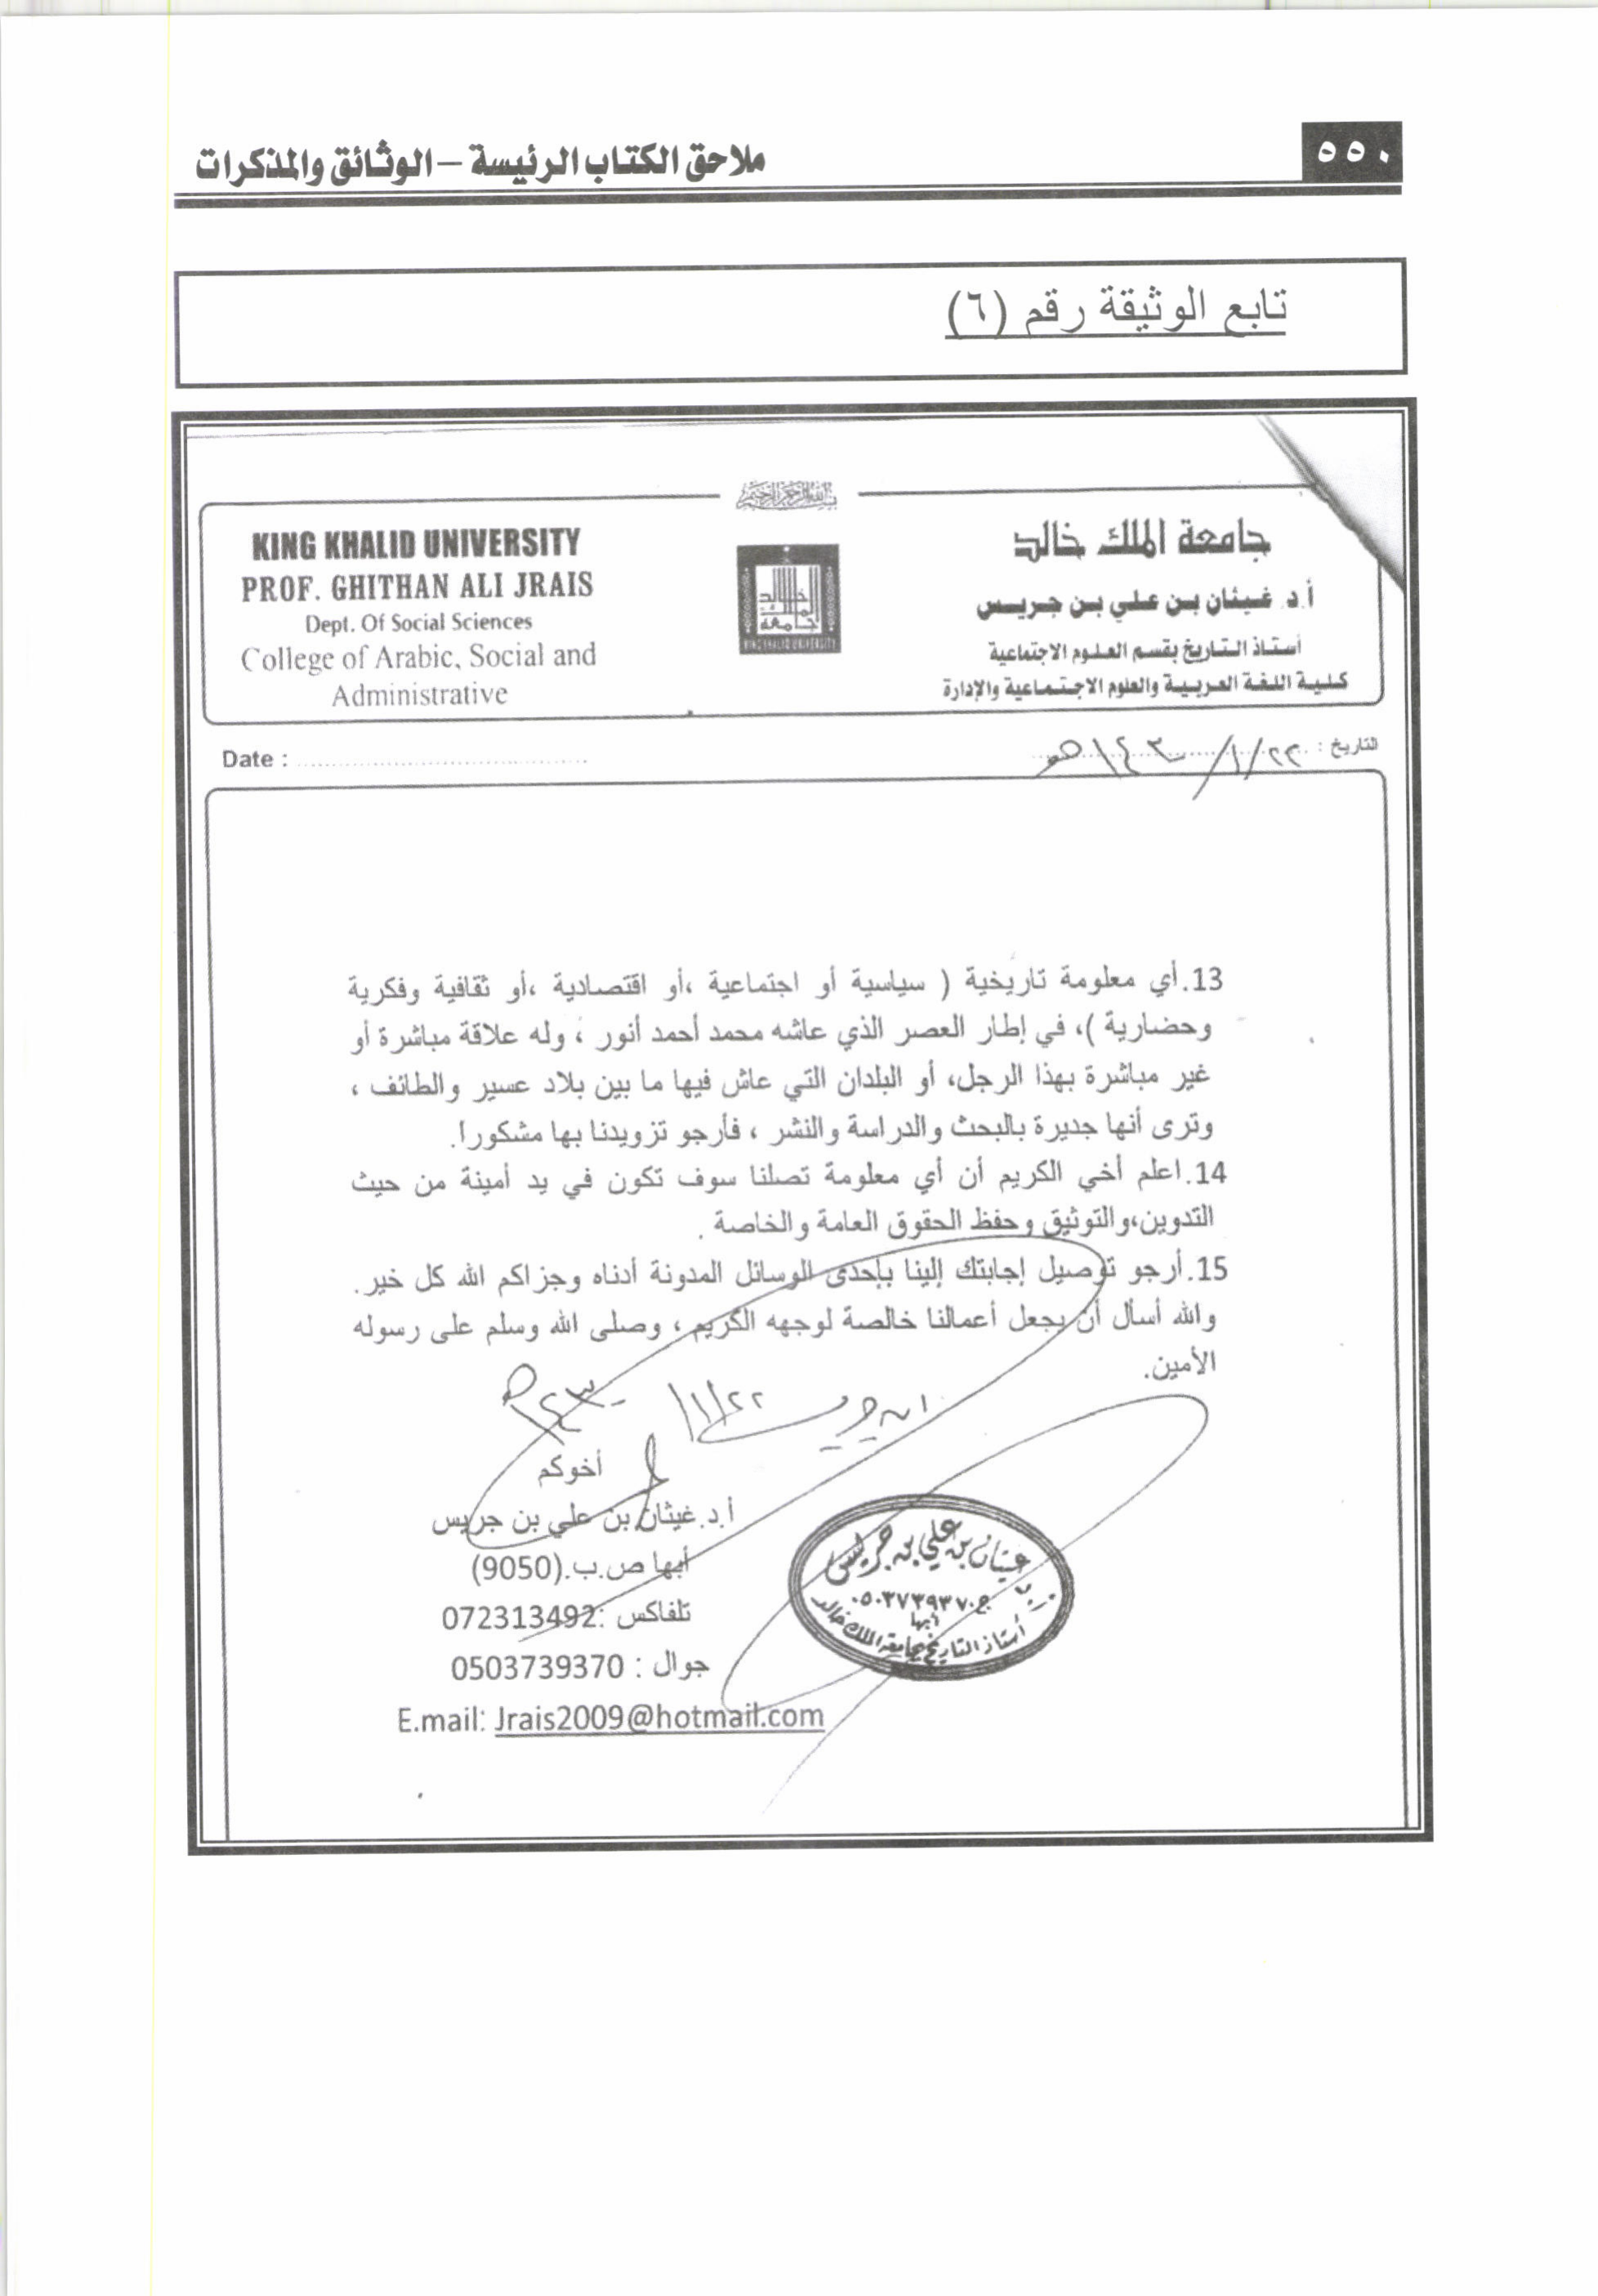 ٥٥٠
ملاحق الكتاب الرئيسة – الوثائق والمذكرات
تابع الوثيقة رقم (٦)
بسم الله الرحمن الرحيم
جامعة الملك خالد
أ.د. غيثان بن علي بن جريس
أستاذ التاريخ بقسم العلوم الاجتماعية
كلية اللغة العربية والعلوم الاجتماعية والإدارة
KING KHALID UNIVERSITY
PROF. GHITHAN ALI JRAIS
Dept. Of Social Sciences
College of Arabic, Social and
Administrative
جامعة الملك خالد
KING KHALID UNIVERSITY
التاريخ : ٢٢/١/١٤٣٠هـ
Date :
13.أي معلومة تاريخية ( سياسية أو اجتماعية ،أو اقتصادية ،أو ثقافية وفكرية
وحضارية )، في إطار العصر الذي عاشه محمد أحمد أنور ، وله علاقة مباشرة أو
غير مباشرة بهذا الرجل، أو البلدان التي عاش فيها ما بين بلاد عسير والطائف ،
وترى أنها جديرة بالبحث والدراسة والنشر ، فأرجو تزويدنا بها مشكورا.
14.اعلم أخي الكريم أن أي معلومة تصلنا سوف تكون في يد أمينة من حيث
التدوين،والتوثيق وحفظ الحقوق العامة والخاصة .
15.أرجو توصيل إجابتك إلينا بإحدى الوسائل المدونة أدناه وجزاكم الله كل خير.
والله أسأل أن يجعل أعمالنا خالصة لوجهه الكريم ، وصلى الله وسلم على رسوله
الأمين.
ابن جريس ٢٢/١/١٤٣٠هـ
أخوكم
أ.د.غيثان بن علي بن جريس
أبها ص.ب.(9050)
تلفاكس :072313492
جوال : 0503739370
E.mail: Jrais2009@hotmail.com
غيثان بن علي بن جريس
ج٠٥٠٣٧٣٩٣٧٠
أبها
أستاذ التاريخ بجامعة الملك خالد